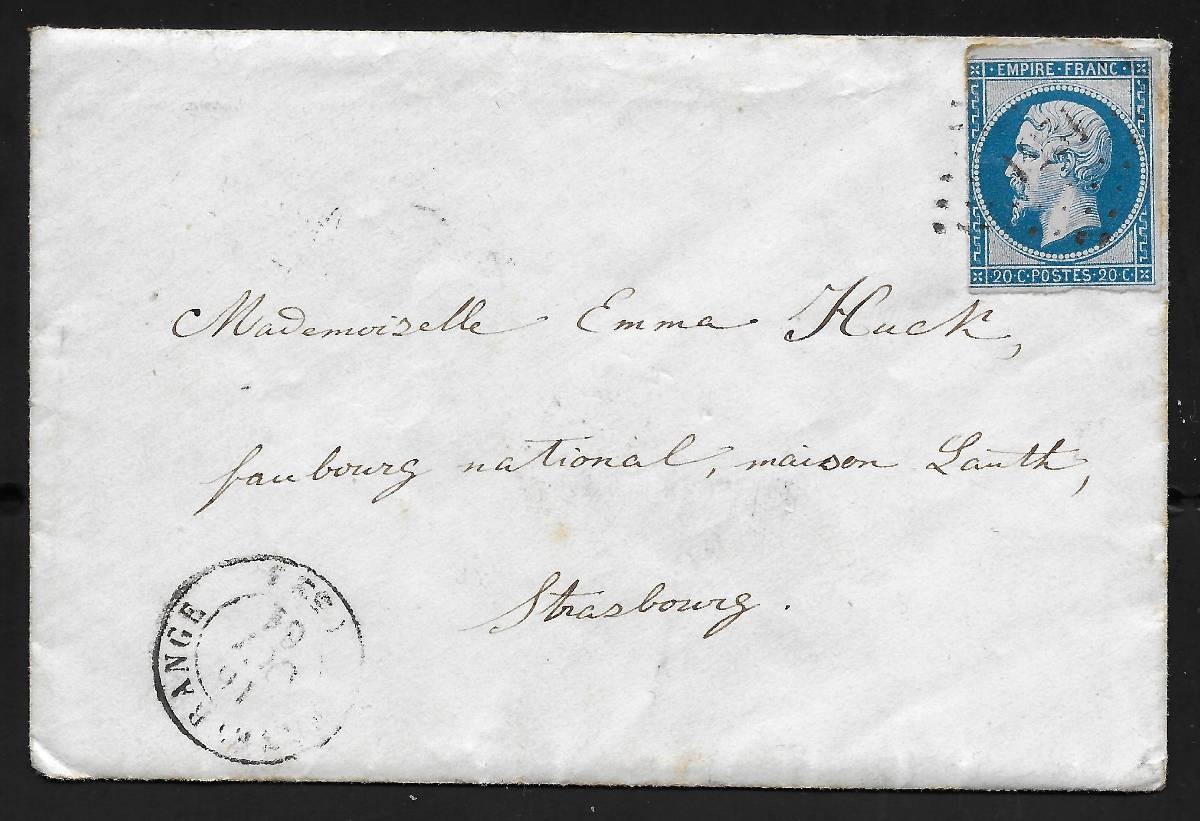 EMPIRE · FRANC ·
20 · C · POSTES · 20 · C ·
Mademoiselle Emma Huck,
faubourg national, maison Lauth,
Strasbourg.